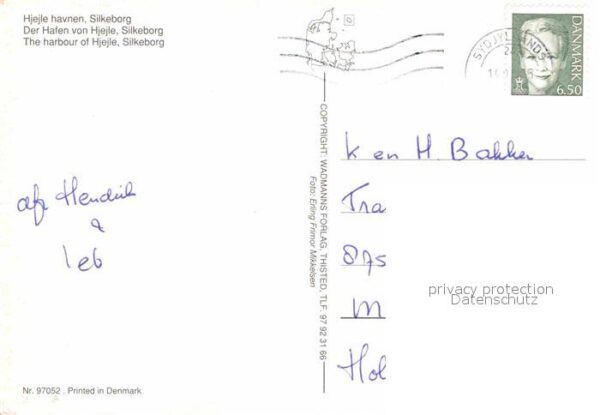 Hjejle havnen, Silkeborg
Der Hafen von Hjejle, Silkeborg
The harbour of Hjejle, Silkeborg
SYDJYLLANDS
DANMARK
6.50
COPYRIGHT: WADMANNS FORLAG, THISTED, TLF. 97 92 31 66
Foto: Erling Frimor Mikkelsen
K en H. Bakker
Tra
875
M
Hol
afz Hendrik
&
Ieb
privacy protection
Datenschutz
Nr. 97052 . Printed in Denmark